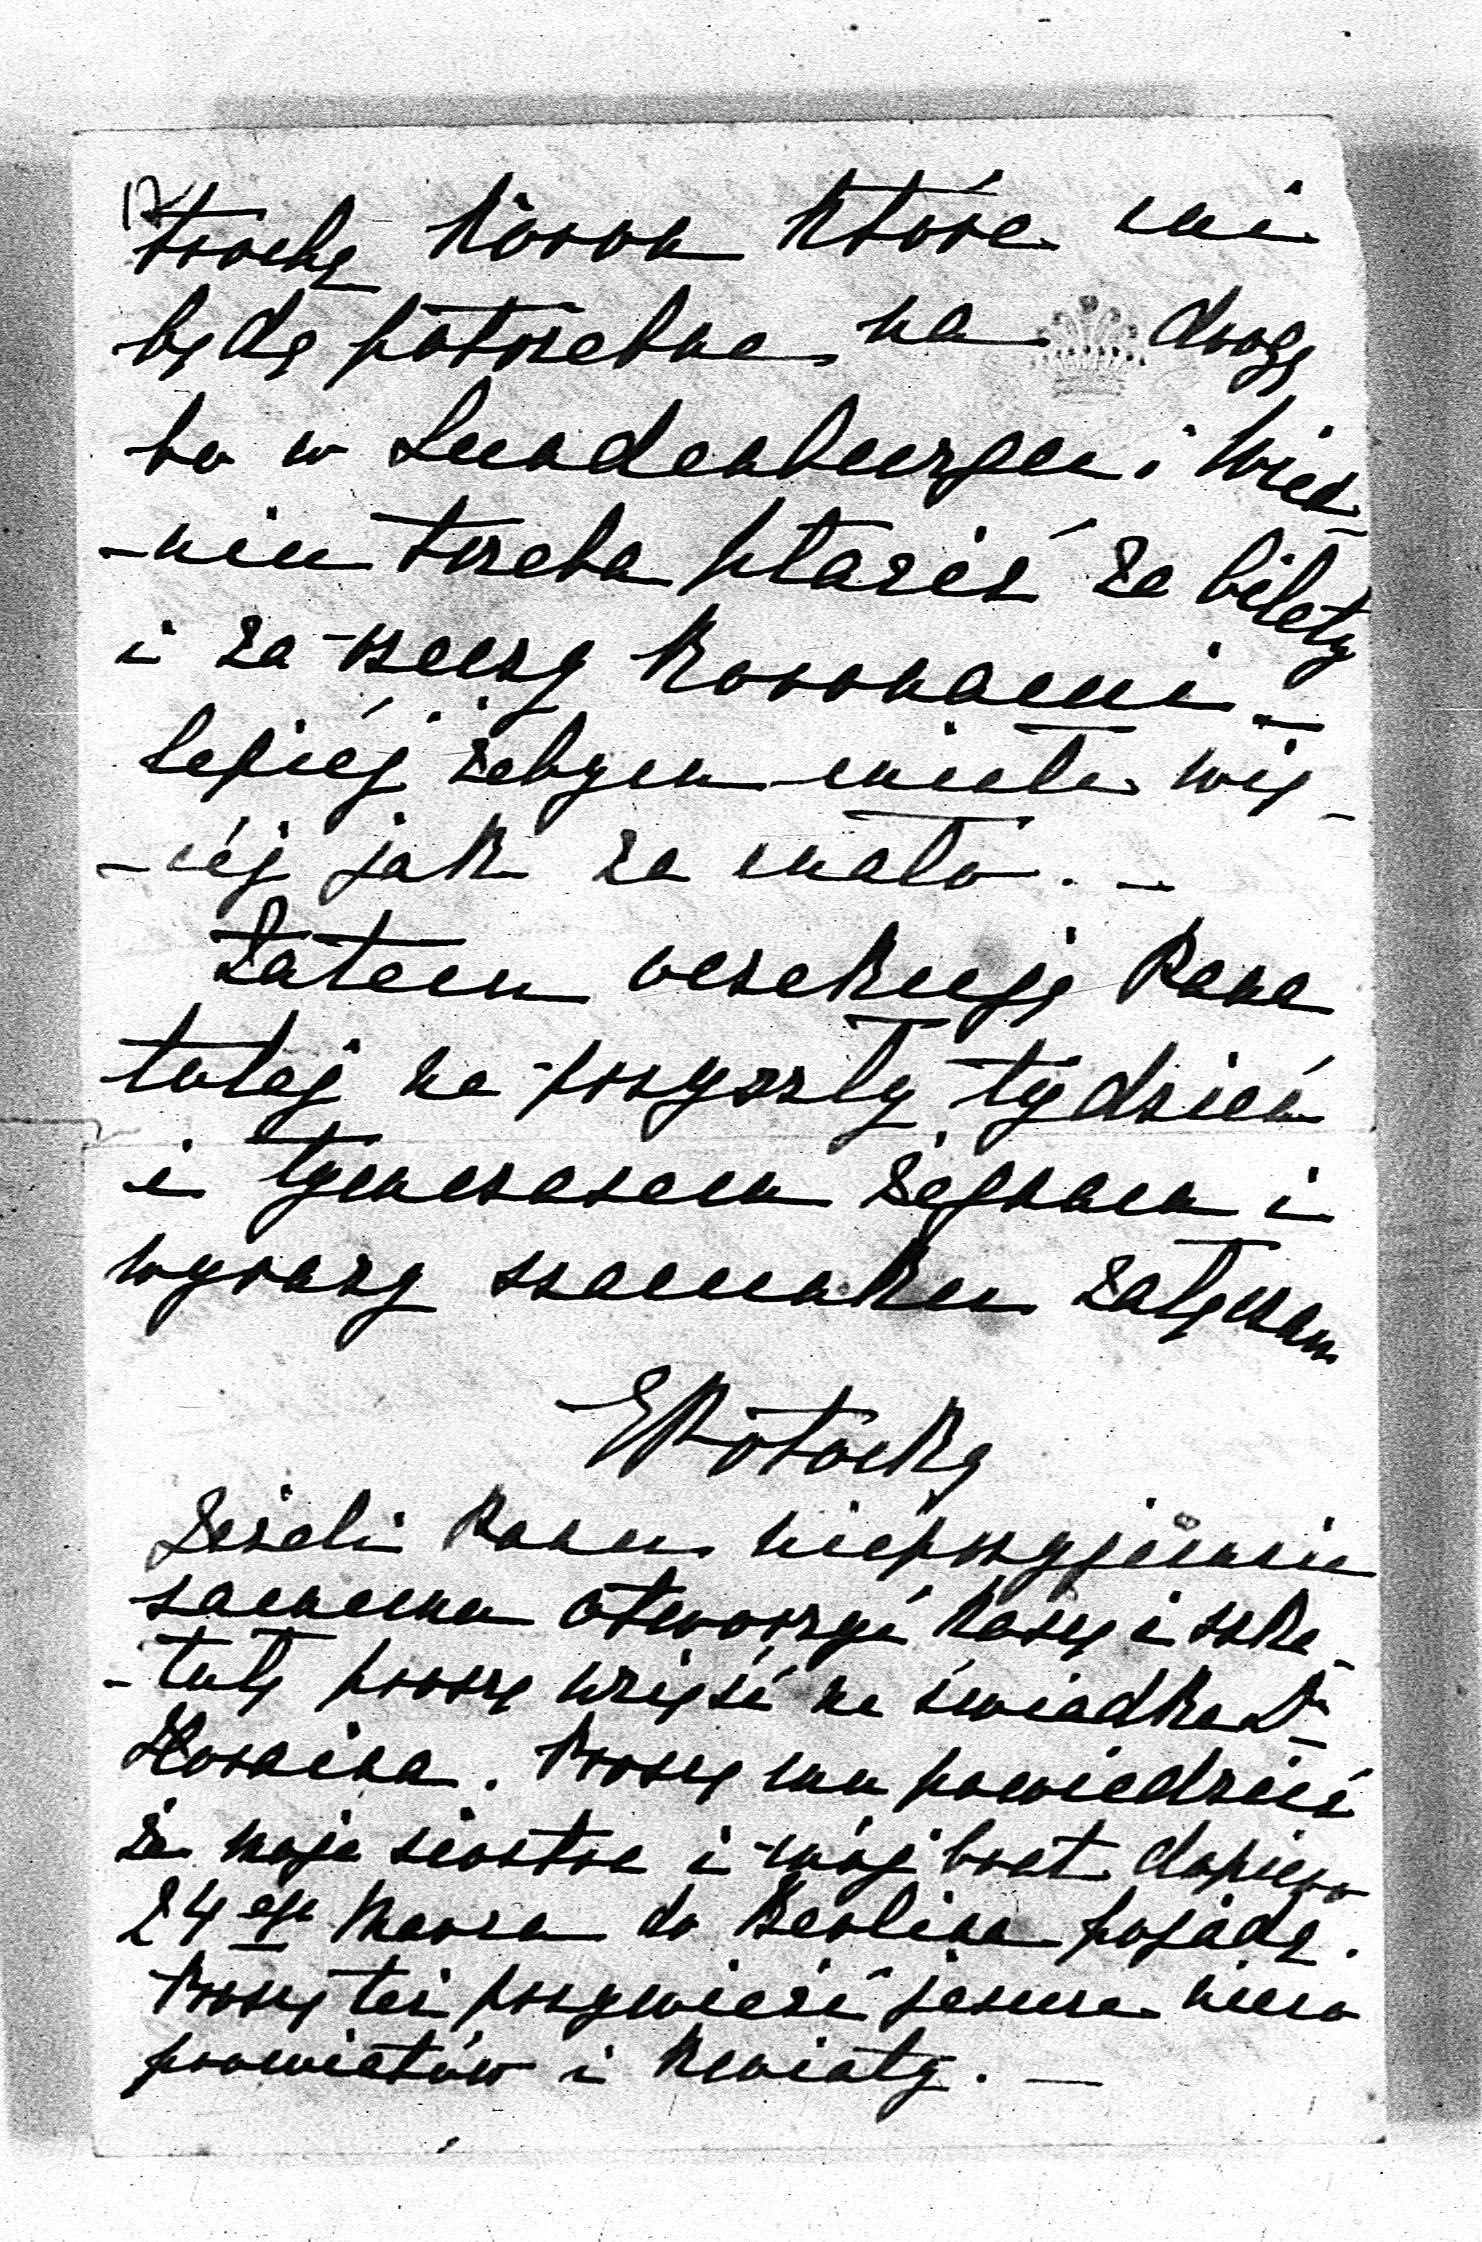 trochę koron które mi
będą potrzebne na drogę
bo w Lundenburgu i Wied-
-niu trzeba płacić za bilety
i za rzeczy koronami _
lepiéj żebym miała wię-
-céj jak za mało. _
Zatem oczekuję Pana
tutaj na przyszły tydzień
i tymczasem żegnam i
wyrazy szacunku załączam
EPotocka
Jeżeli Panu nieprzyjemnie
samemu otworzyć kasę i szka-
-tułę proszę wziąść na świadka Dr
Proszę mu powiedzieć
że moja siostra i mój brat dopiero
24ego Marca do Berlina pojadą.
Proszę też przywieźć jeszcze nieco
i kwiaty. _